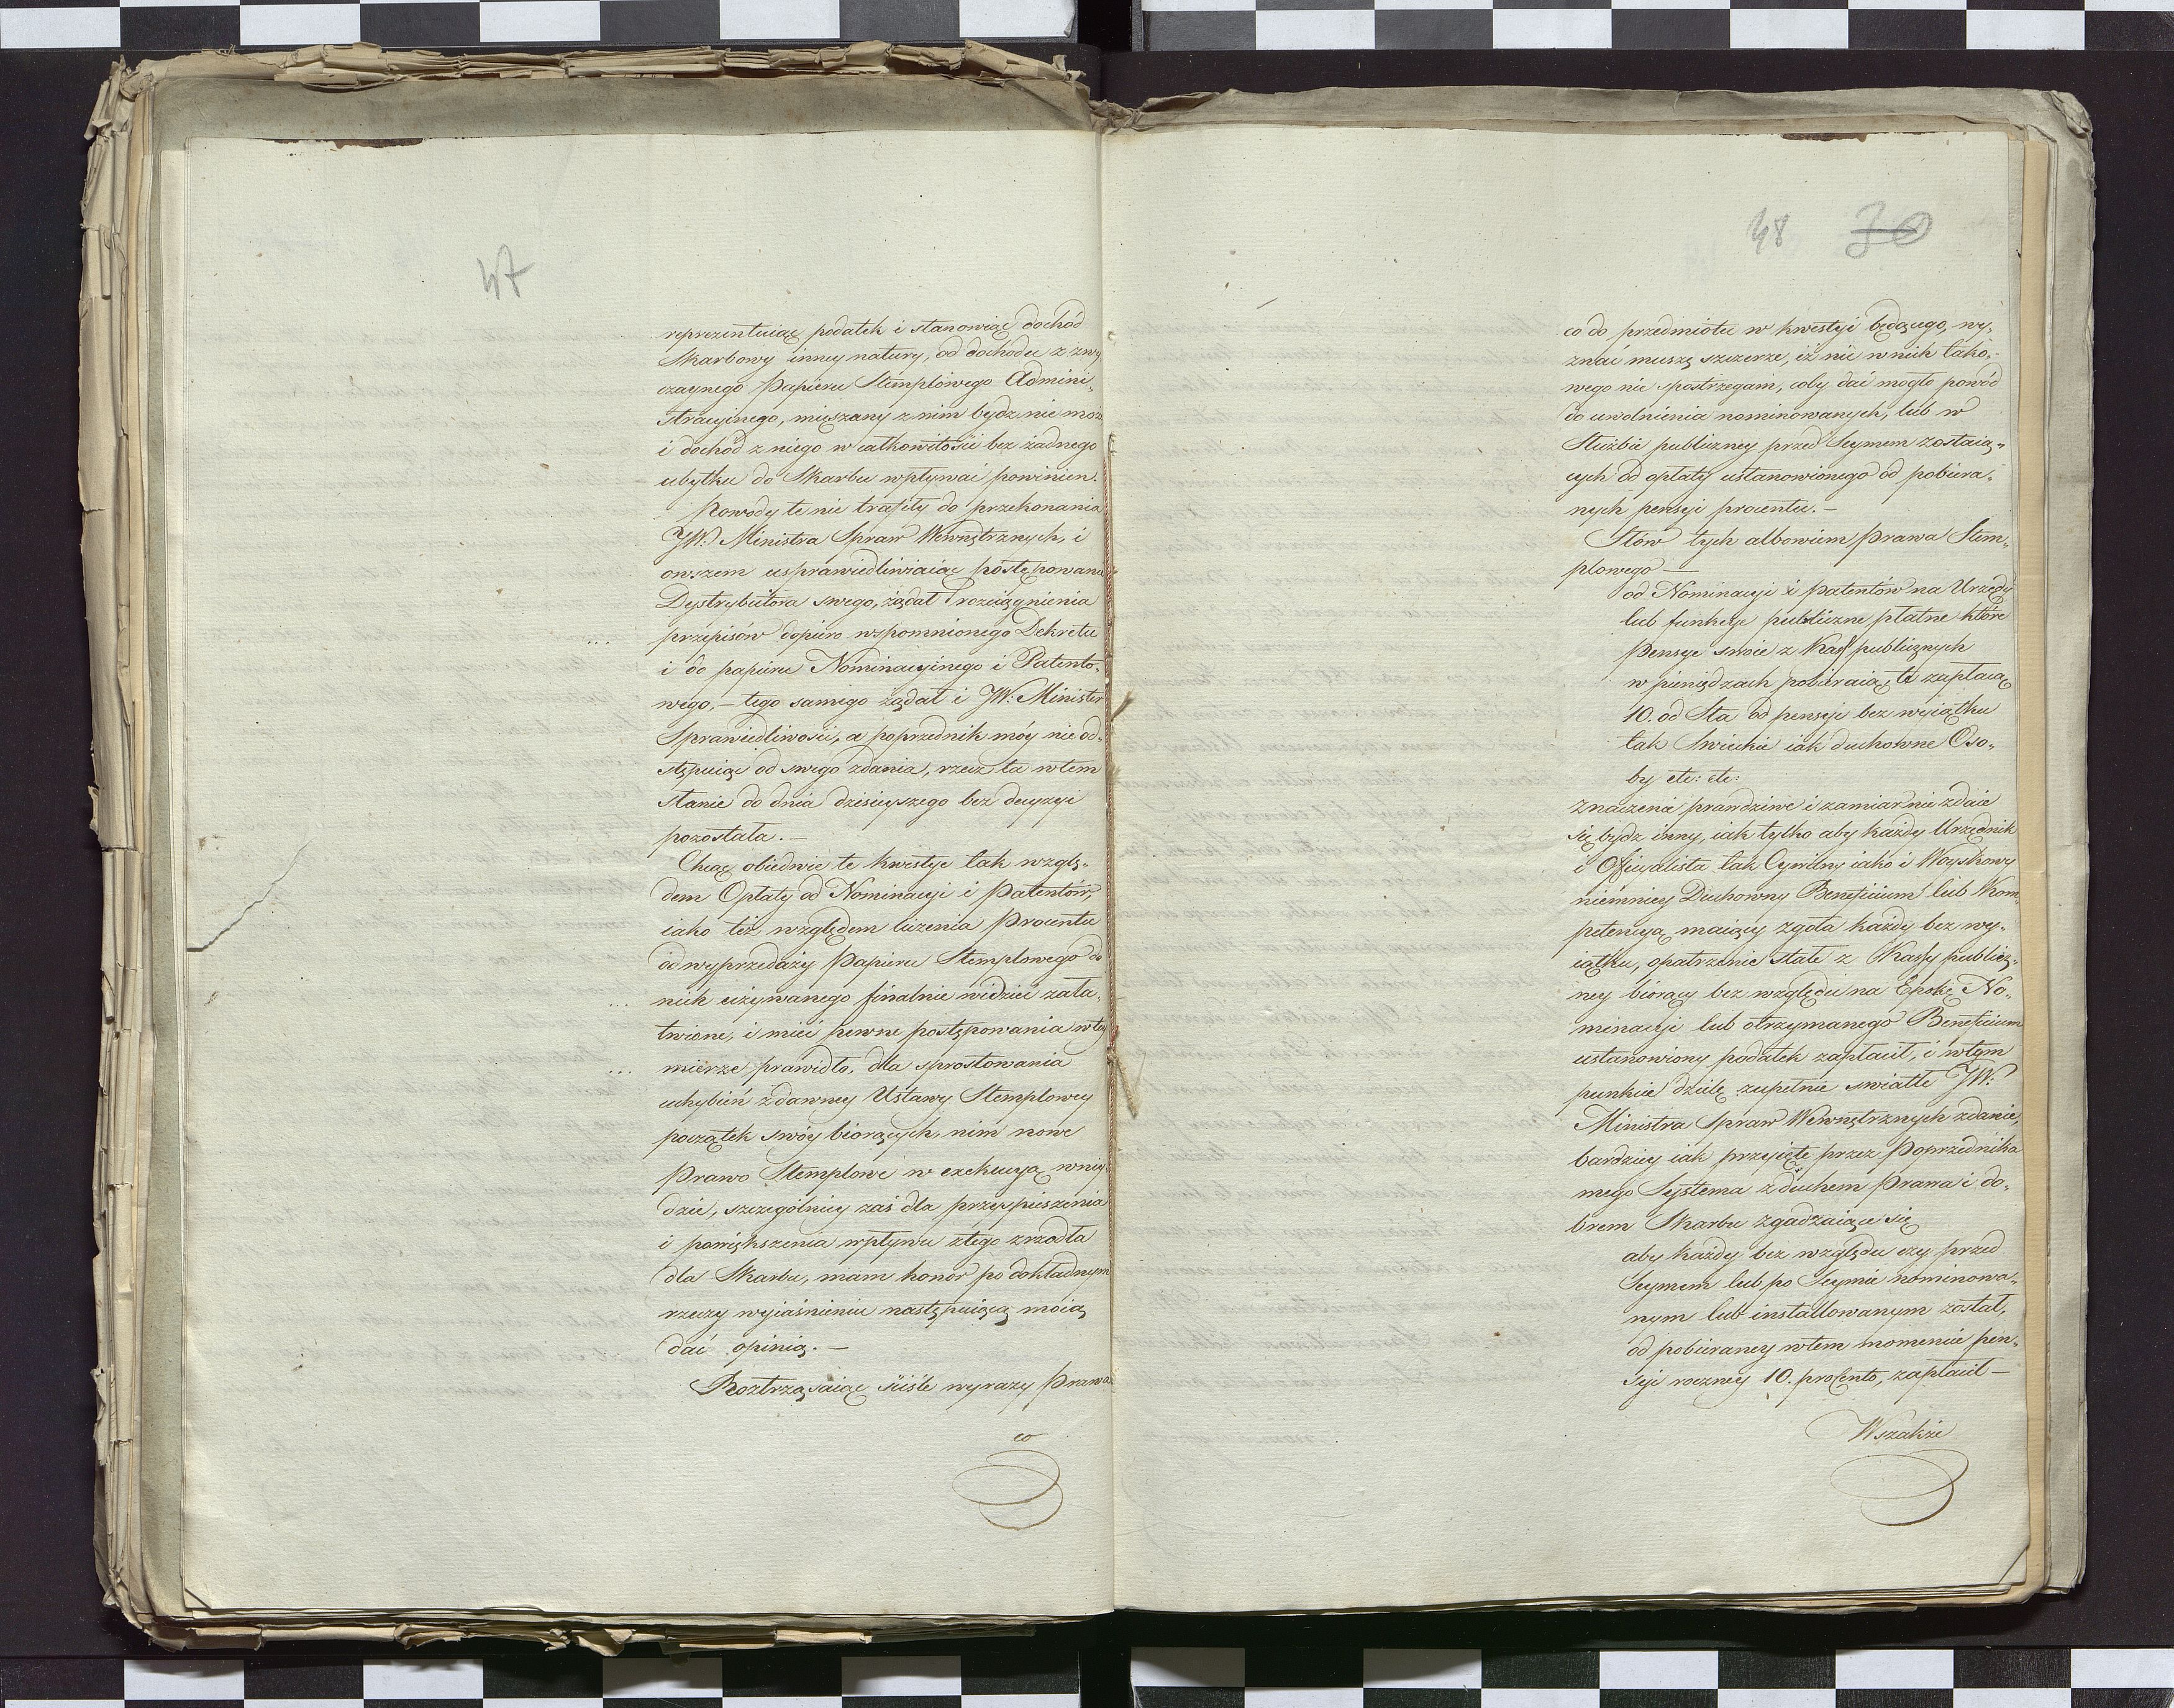 47
reprezentuiąc podatek i stanowiąc dochód
Skarbowy inney natury, od dochodu z zwy
czaynego Papieru Stemplowego Admini„
stracyinego, mięszany z nim bydz nie może
i dochód z niego w całkowitości bez żadnego
ubytku do Skarbu wpływać powinien.
Powody te nie trafiły do przekonania
JW: Ministra Spraw Wewnętrznych, i
owszem usprawiedliwiaiąc postępowanie
Dystrybutora swego, żądał rozciągnienia
przepisów dopiero wspomnionego Dekretu
i do papieru Nominacyinego i Patento„
wego, – tego samego żądał i JW: Minister
Sprawiedliwości, a poprzednik móy nie od„
stępuiąc od swego zdania, rzecz ta w tem
stanie do dnia dzisieyszego bez decyzyi
pozostała. –
Chcąc obiedwie te kwestye tak wzglę„
dem Opłaty od Nominacyi i Patentów,
iako też względem liczenia Procentu
od wyprzedaży Papieru Stemplowego do
nich używanego finalnie widzieć zała„
twione, i mieć pewne postępowania w tey
mierze prawidło, dla sprostowania
uchybień z dawney Ustawy Stemplowey
początek swóy biorących, nim nowe
Prawo Stemplowe w exekucyą wniy
dzie, szczególniey zaś dla przyspieszenia
i powiększenia wpływu z tego zrzodła
dla Skarbu, mam honor po dokładnym
rzeczy wyiaśnieniu następuiącą moią
dać opinią. –
Roztrząsaiąc ściśle wyrazy Prawa
co
48 30
co do przedmiotu w kwestyi będącego, wy„
znać muszę szczerze, iż nic w nich tako„
wego nie spostrzegam, coby dać mogło powód
do uwolnienia nominowanych, lub w
Służbie publiczney przed Seymem zostaią„
cych od opłaty ustanowionego od pobiera„
nych pensyi procentu. –
Słów tych albowiem Prawa Stem„
plowego —
od Nominacyi i Patentów na Urzędy
lub funkcye publiczne płatne które
Pensye swoie z Kass publicznych
w pieniądzach pobieraią, te zapłacą
10. od Sta od pensyi bez wyiątku
tak Swieckie iak duchowne Oso„
by etc: etc:
znaczenie prawdziwe i zamiar nie zdaie
się bydz inny, iak tylko aby każdy Urzędnik
i Officyalista tak Cywilny iako i Woyskowy
niemniey Duchowny Beneficium lub Kom„
petencyą maiący zgoła każdy bez wy„
iątku, opatrzenie stałe z Kassy publicz„
ney biorący bez względu na Epokę No„
minacyi lub otrzymanego Beneficium
ustanowiony podatek zapłacił, i w tym
punkcie dzielę zupełnie swiatłe JW:
Ministra Spraw Wewnętrznych zdanie,
bardziey iak przyięte przez Poprzednika
mego Systema z duchem Prawa i do„
brem Skarbu zgadzaiące się
aby każdy bez względu czy przed
Seymem lub po Seymie nominowa„
nym lub installowanym został,
od pobieraney w tem momencie pen„
syi roczney 10. procento, zapłacił —
Wszakże